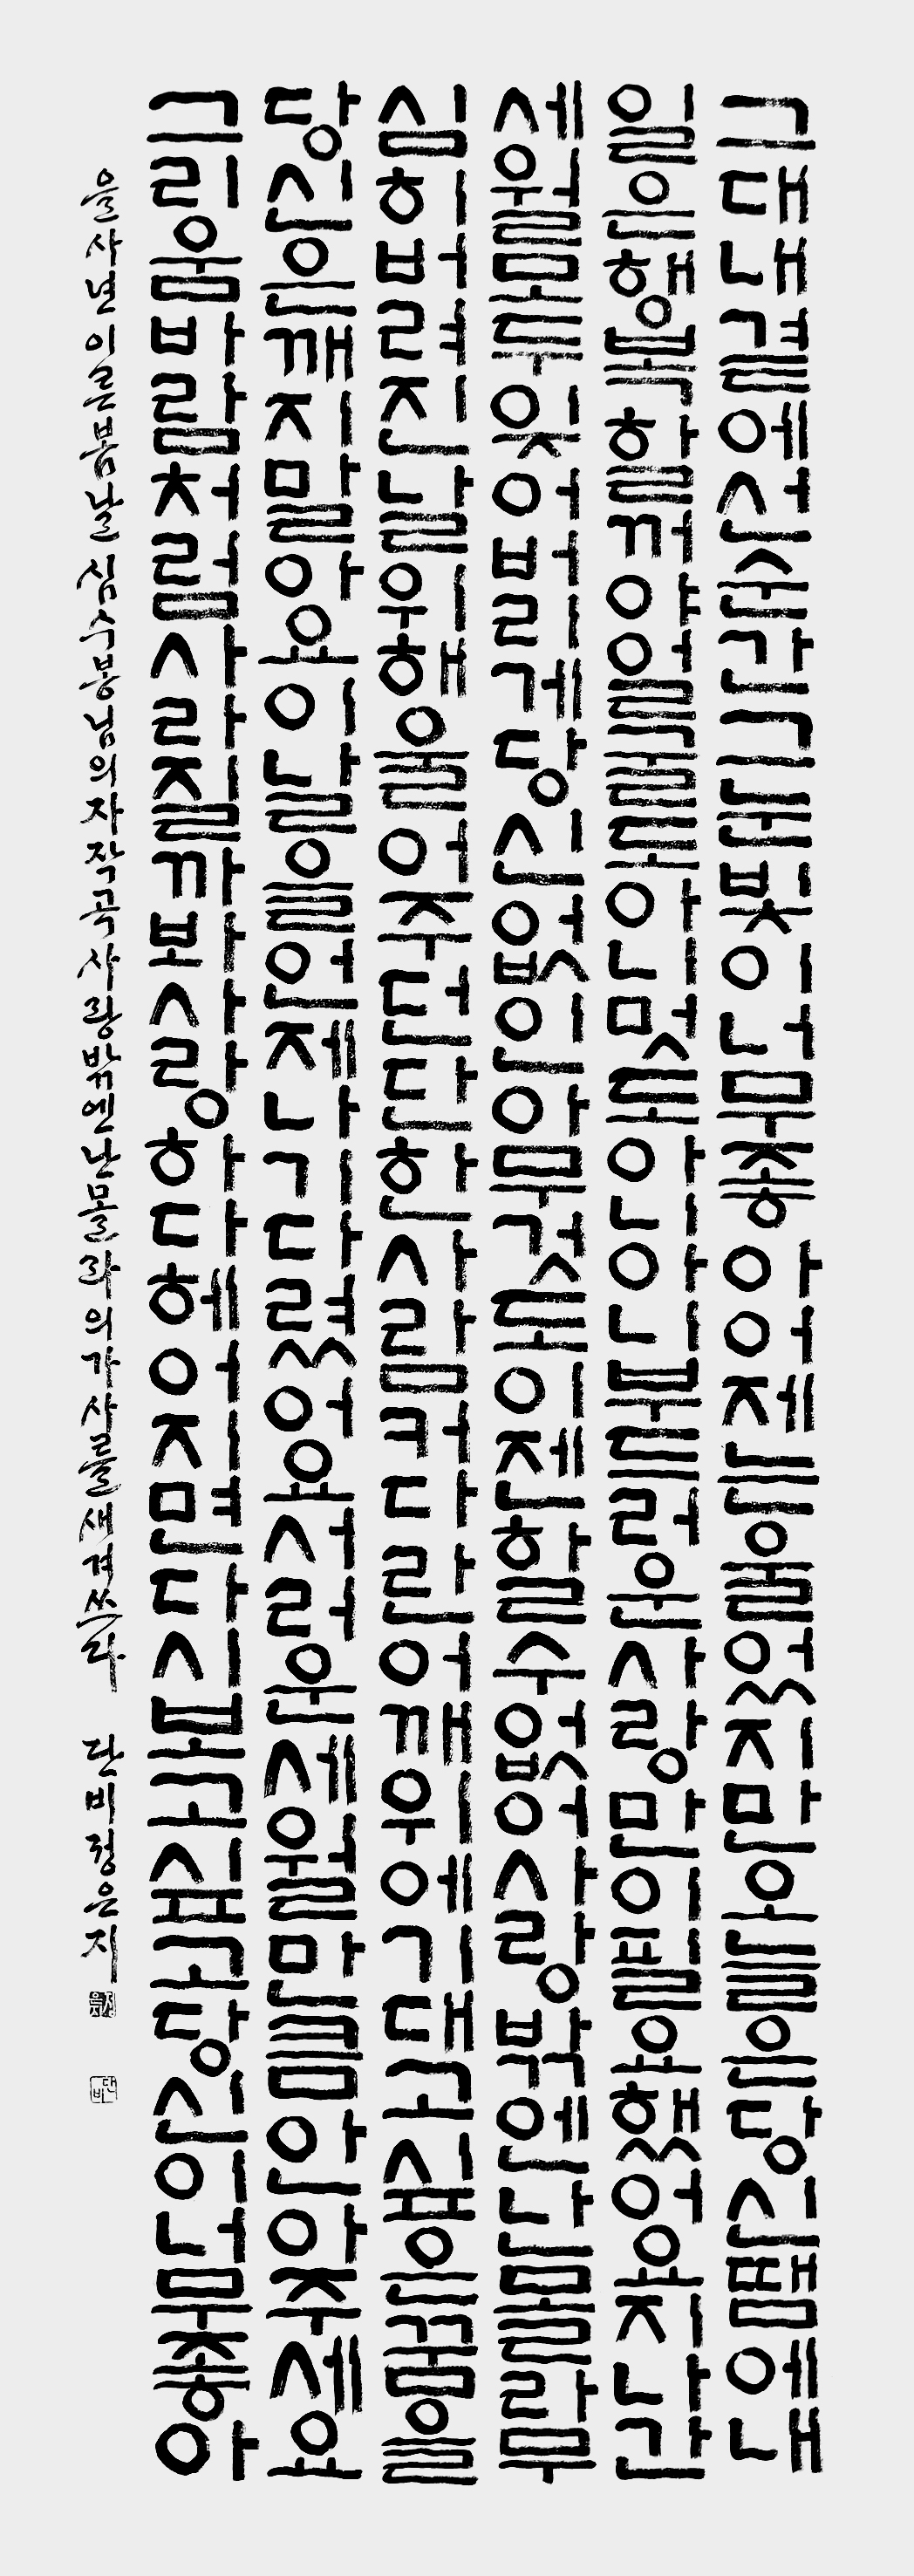 그대내곁에선순간그눈빛이너무좋아어제는울었지만오늘은당신땜에내
일은행복할꺼야얼굴도아니멋도아니아니부드러운사랑만이필요했어요지나간
세월모두잊어버리게당신없인아무것도이젠할수없어사랑밖엔난몰라무
심히버려진날위해울어주던단한사람커다란어깨위에기대고싶은꿈을
당신은깨지말아요이날을언제나기다렸어요서러운세월만큼안아주세요
그리움바람처럼사라질까봐사랑하다헤어지면다시보고싶고당신이너무좋아
을사년이른봄날 심수봉님의자작곡사랑밖엔난몰라의가사를새겨쓰다 단비정은지
단비